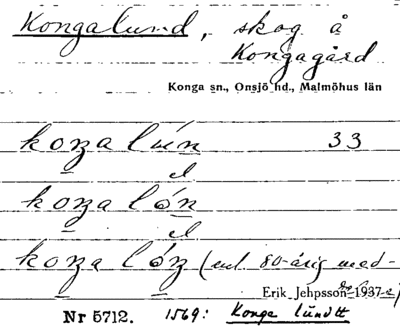 Kongalund, skog å
Kongagård
Konga sn., Onsjö hd., Malmöhus län
koŋa lún 33
el
koŋa lón
el
koŋa lóŋ (enl. 80-årig med-
Erik Jehpsson 1937
Nr 5712. 1569: Konge lundtt